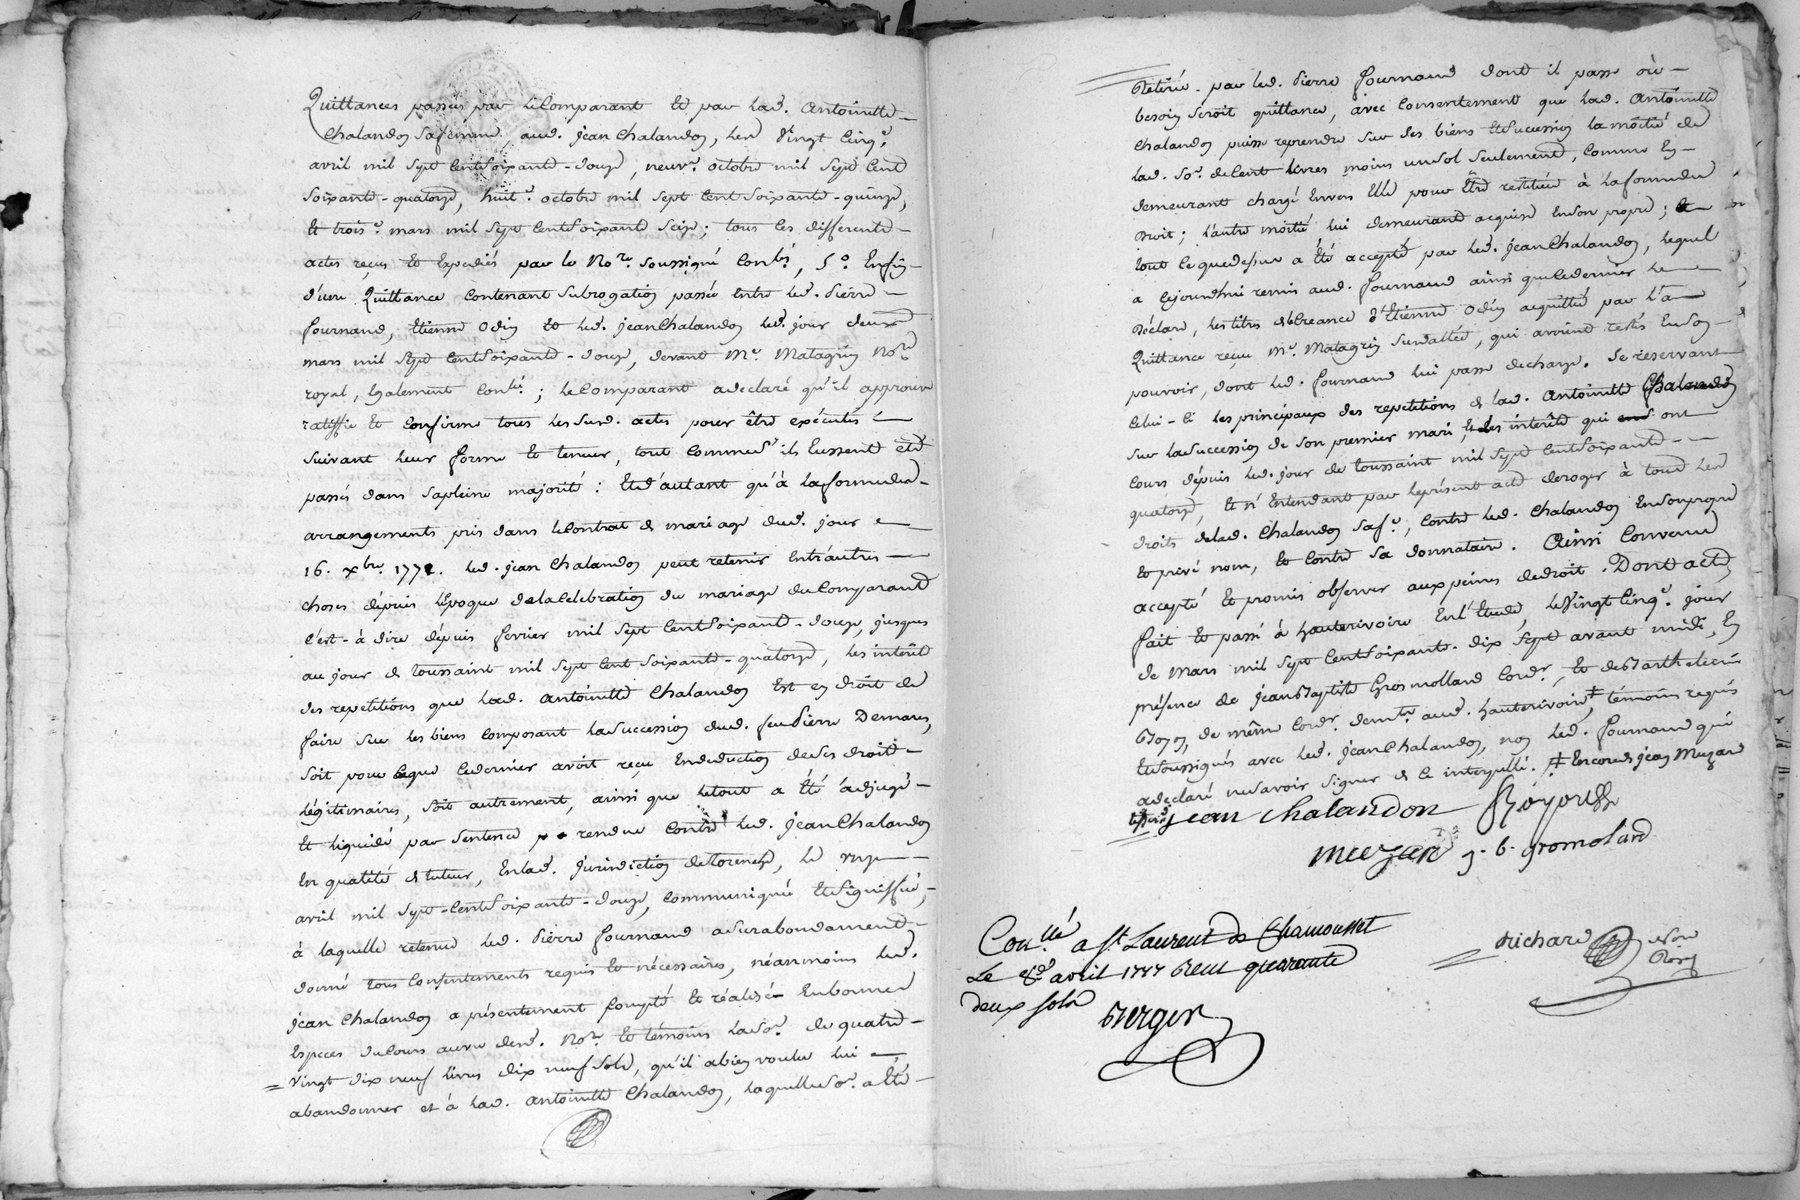 Quittances passées par le Comparant et par lad. Antoinette
Chalandon sa femme aud. Jean Chalandon, les Vingt Cinq.e
avril mil sept Cent Soixante-douze, neuv.e octobre mil sept Cent
Soixante-quatorze, huit.e octobre mil sept Cent Soixante-quinze,
et trois.e mars mil sept Cent Soixante Seize; tous les differents
actes reçus et Expediés par le No.re Soussigné Con.lés, 5.o Enfin
d'une Quittance Contenant Subrogation passée Entre led. Pierre
fournand, Etienne Odin et led. Jean Chalandon led. jour deux
mars mil sept Cent Soixante-douze, devant M.e Matagrin No.re
royal, Egalement Con.lé; le Comparant a declaré qu'il approuve
ratiffie et Confirme tous les Susd. actes pour être exécutés
Suivant leur forme et teneur, tout Comme S'ils Eussent été
passés dans sa pleine majorité: Et d'autant qu'à la forme des
arrangements pris dans le Contrat de mariage dud. jour
16. Xbre. 1771. led. Jean Chalandon peut retenir Entr'autres
choses dépuis l'Epoque de la Celebration du mariage du Comparant
C'est-à dire dépuis fevrier mil sept Cent Soixante-douze, jusques
au jour de toussaint mil sept Cent Soixante-quatorze, les intérêts
des repetitions que lad. Antoinette Chalandon Est en droit de
faire Sur les biens Composant la Succession dud. feu Pierre Demares,
Soit pour Ce que Ce dernier avoit reçu En deduction de Ses droits
légitimaires, Soit autrement, ainsi que le tout a Eté adjugé
et liquidé par Sentence rendue Contre led. Jean Chalandon
En qualité de tuteur, En lad. Jurisdiction de
avril mil sept-Cent Soixante-douze, Communiqué et Signiffié,
à laquelle retenue led. Pierre fournand a Surabondament
donné tous Consentements requis et nécessaires, néanmoins led.
Jean Chalandon a présentement Compté et réalisé En bonnes
Especes du Cours au vu desd. No.re et témoins la So.e de quatre
Vingt dix neuf livres dix neuf Sols, qu'il a bien voulu lui
abandonner et à lad. Antoinette Chalandon, laquelle So.e a Eté
Retirée par led. Pierre fournand dont il passe où
besoin Seroit quittance, avec Consentement que lad. Antoinette
Chalandon puisse reprendre Sur Ses biens et Succession la moitié de
lad. So.e de Cent livres moins un Sol Seulement, Comme En
demeurant chargé Envers Elle pour Etre restituée à la forme du
Droit; l'autre moitié lui demeurant acquise En Son propre;
tout Ce que dessus a Eté accepté par led. Jean Chalandon, lequel
a Cejourd'hui remis aud. fournand ainsi que Ce dernier le
Déclare, les titres de Creance d'Etienne Odin acquittés par la
Quittance reçue M.e Matagrin Susdattée, qui avoient restés En Son
pouvoir, dont led. fournand lui passe decharge. Se réservant
Celui-Ci les principaux des repetitions de lad. Antoinette Chalandon
Sur la Succession de Son premier mari, et les intérêts qui ont
Cours dépuis led. jour de toussaint mil sept Cent Soixante
quatorze, et n'Entendant par le présent acte deroger à tous les
droits de lad. Chalandon Sa f.e, Contre led. Chalandon En Son propre
et privé nom, et Contre Sa donnataire. Ainsi Convenu
accepté et promis observer aux peines de droit. Dont acte
fait et passé à hauterivoire En l'Etude, le Vingt Cinq.e jour
de mars mil sept Cent Soixante-dix Sept avant midi, En
présence de Jean Baptiste Gromolland Cord.r, et de Barthelemi
Boyon, de même Cord.r dem.ts aud. hauterivoire ‡ témoins requis
Et Soussignés avec led. Jean Chalandon, non led. fournand qui
a declaré ne Savoir Signer de Ce interpellé. ‡ Encore de Jean Muzard
Jean Chalandon
muzard J. B. gromolard
Con.llé a St. Laurent de Chamousset
Le avril 1777 Reçu quarante
deux sols
Berger
Richard No.re
Roy.